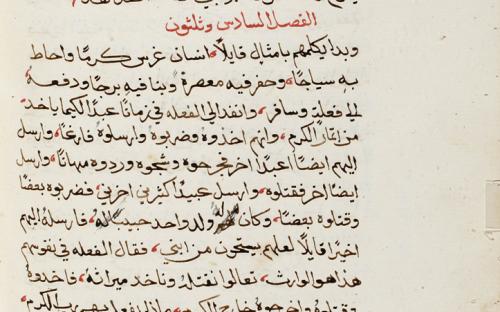 الفصل السادس وثلثون
وبدا يكلمهم بامثال قايلاً انسان غرس كرمًا واحاط
به سياجًا وحفر فيه معصرة وبنا فيه برجًا ودفعه
الي فعله وسافر وانفد الي الفعله في زمانًا عبدًا لكيما ياخد
من اثار الكرم وانهم اخدوه وضربوه وارسلوه فارغًا وارسل
اليهم ايضًا عبدًا اخر فجرحوه وشجوه وردوه مهانًا وارسل
ايضًا اخر فقتلوه وارسل عبيدًا اكثر من اخرين فضربوه بعضًا
وقتلوه بعضًا وكان ولد واحد حبيبًا له فارسله اليهم
اخيرًا قايلاً لعلهم يستحون من ابني فقال الفعله في نفوسهم
هذا هو الوارث تعالوا نقتله وناخد ميراثه فاخدوه